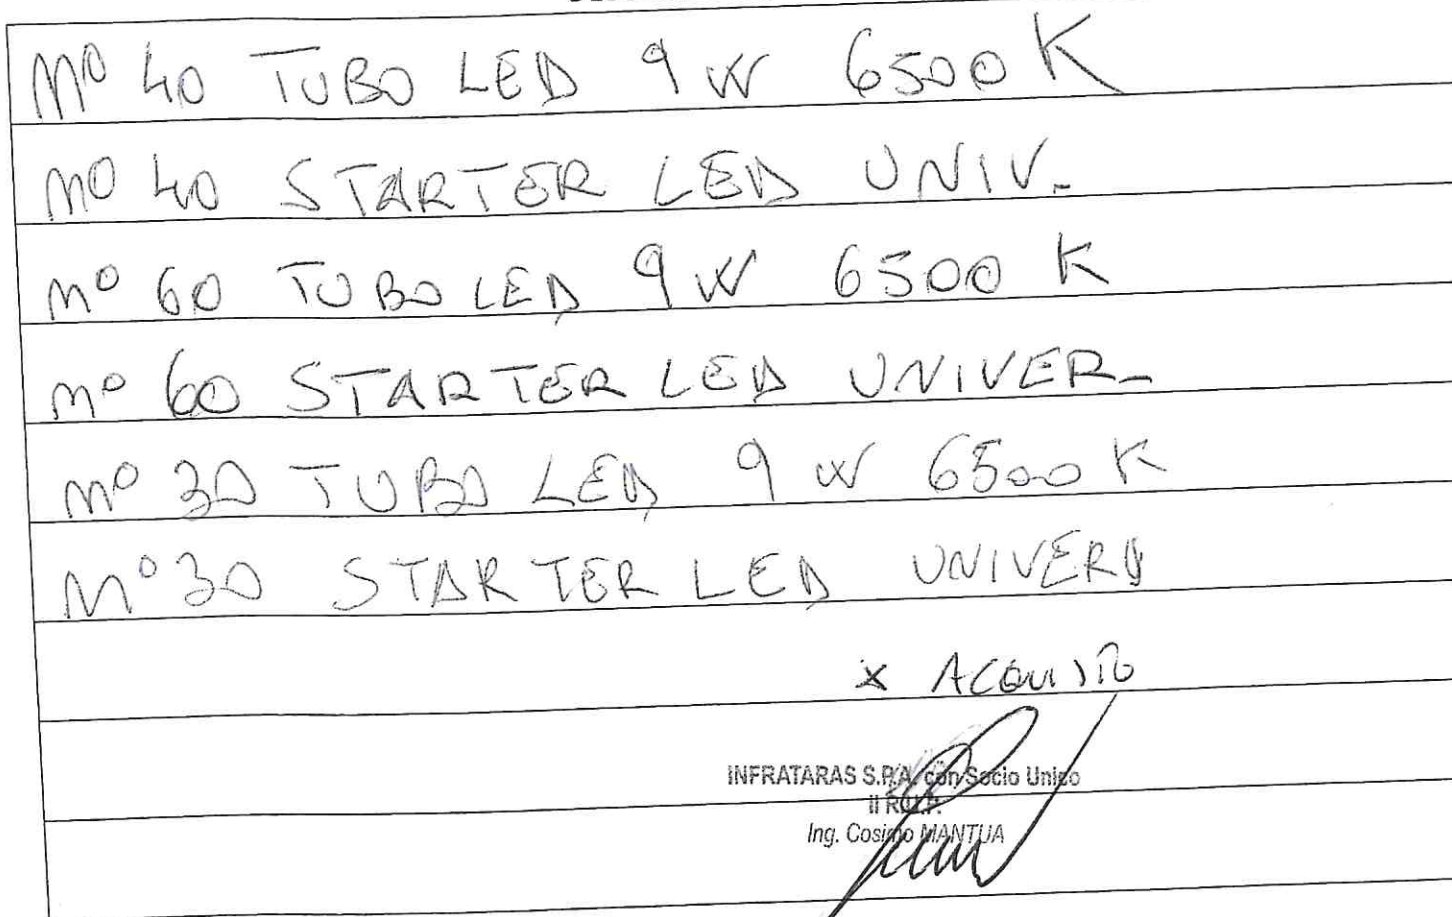 N° 40 TUBO LED 9 W 6500 K
N° 40 STARTER LED UNIV.
N° 60 TUBO LED 9 W 6500 K
N° 60 STARTER LED UNIVER.
N° 30 TUBO LED 9 W 6500 K
N° 30 STARTER LED UNIVERS
x ACQUISTO
INFRATARAS S.P.A. con Socio Unico
Il R.U.P.
Ing. Cosimo MANTUA